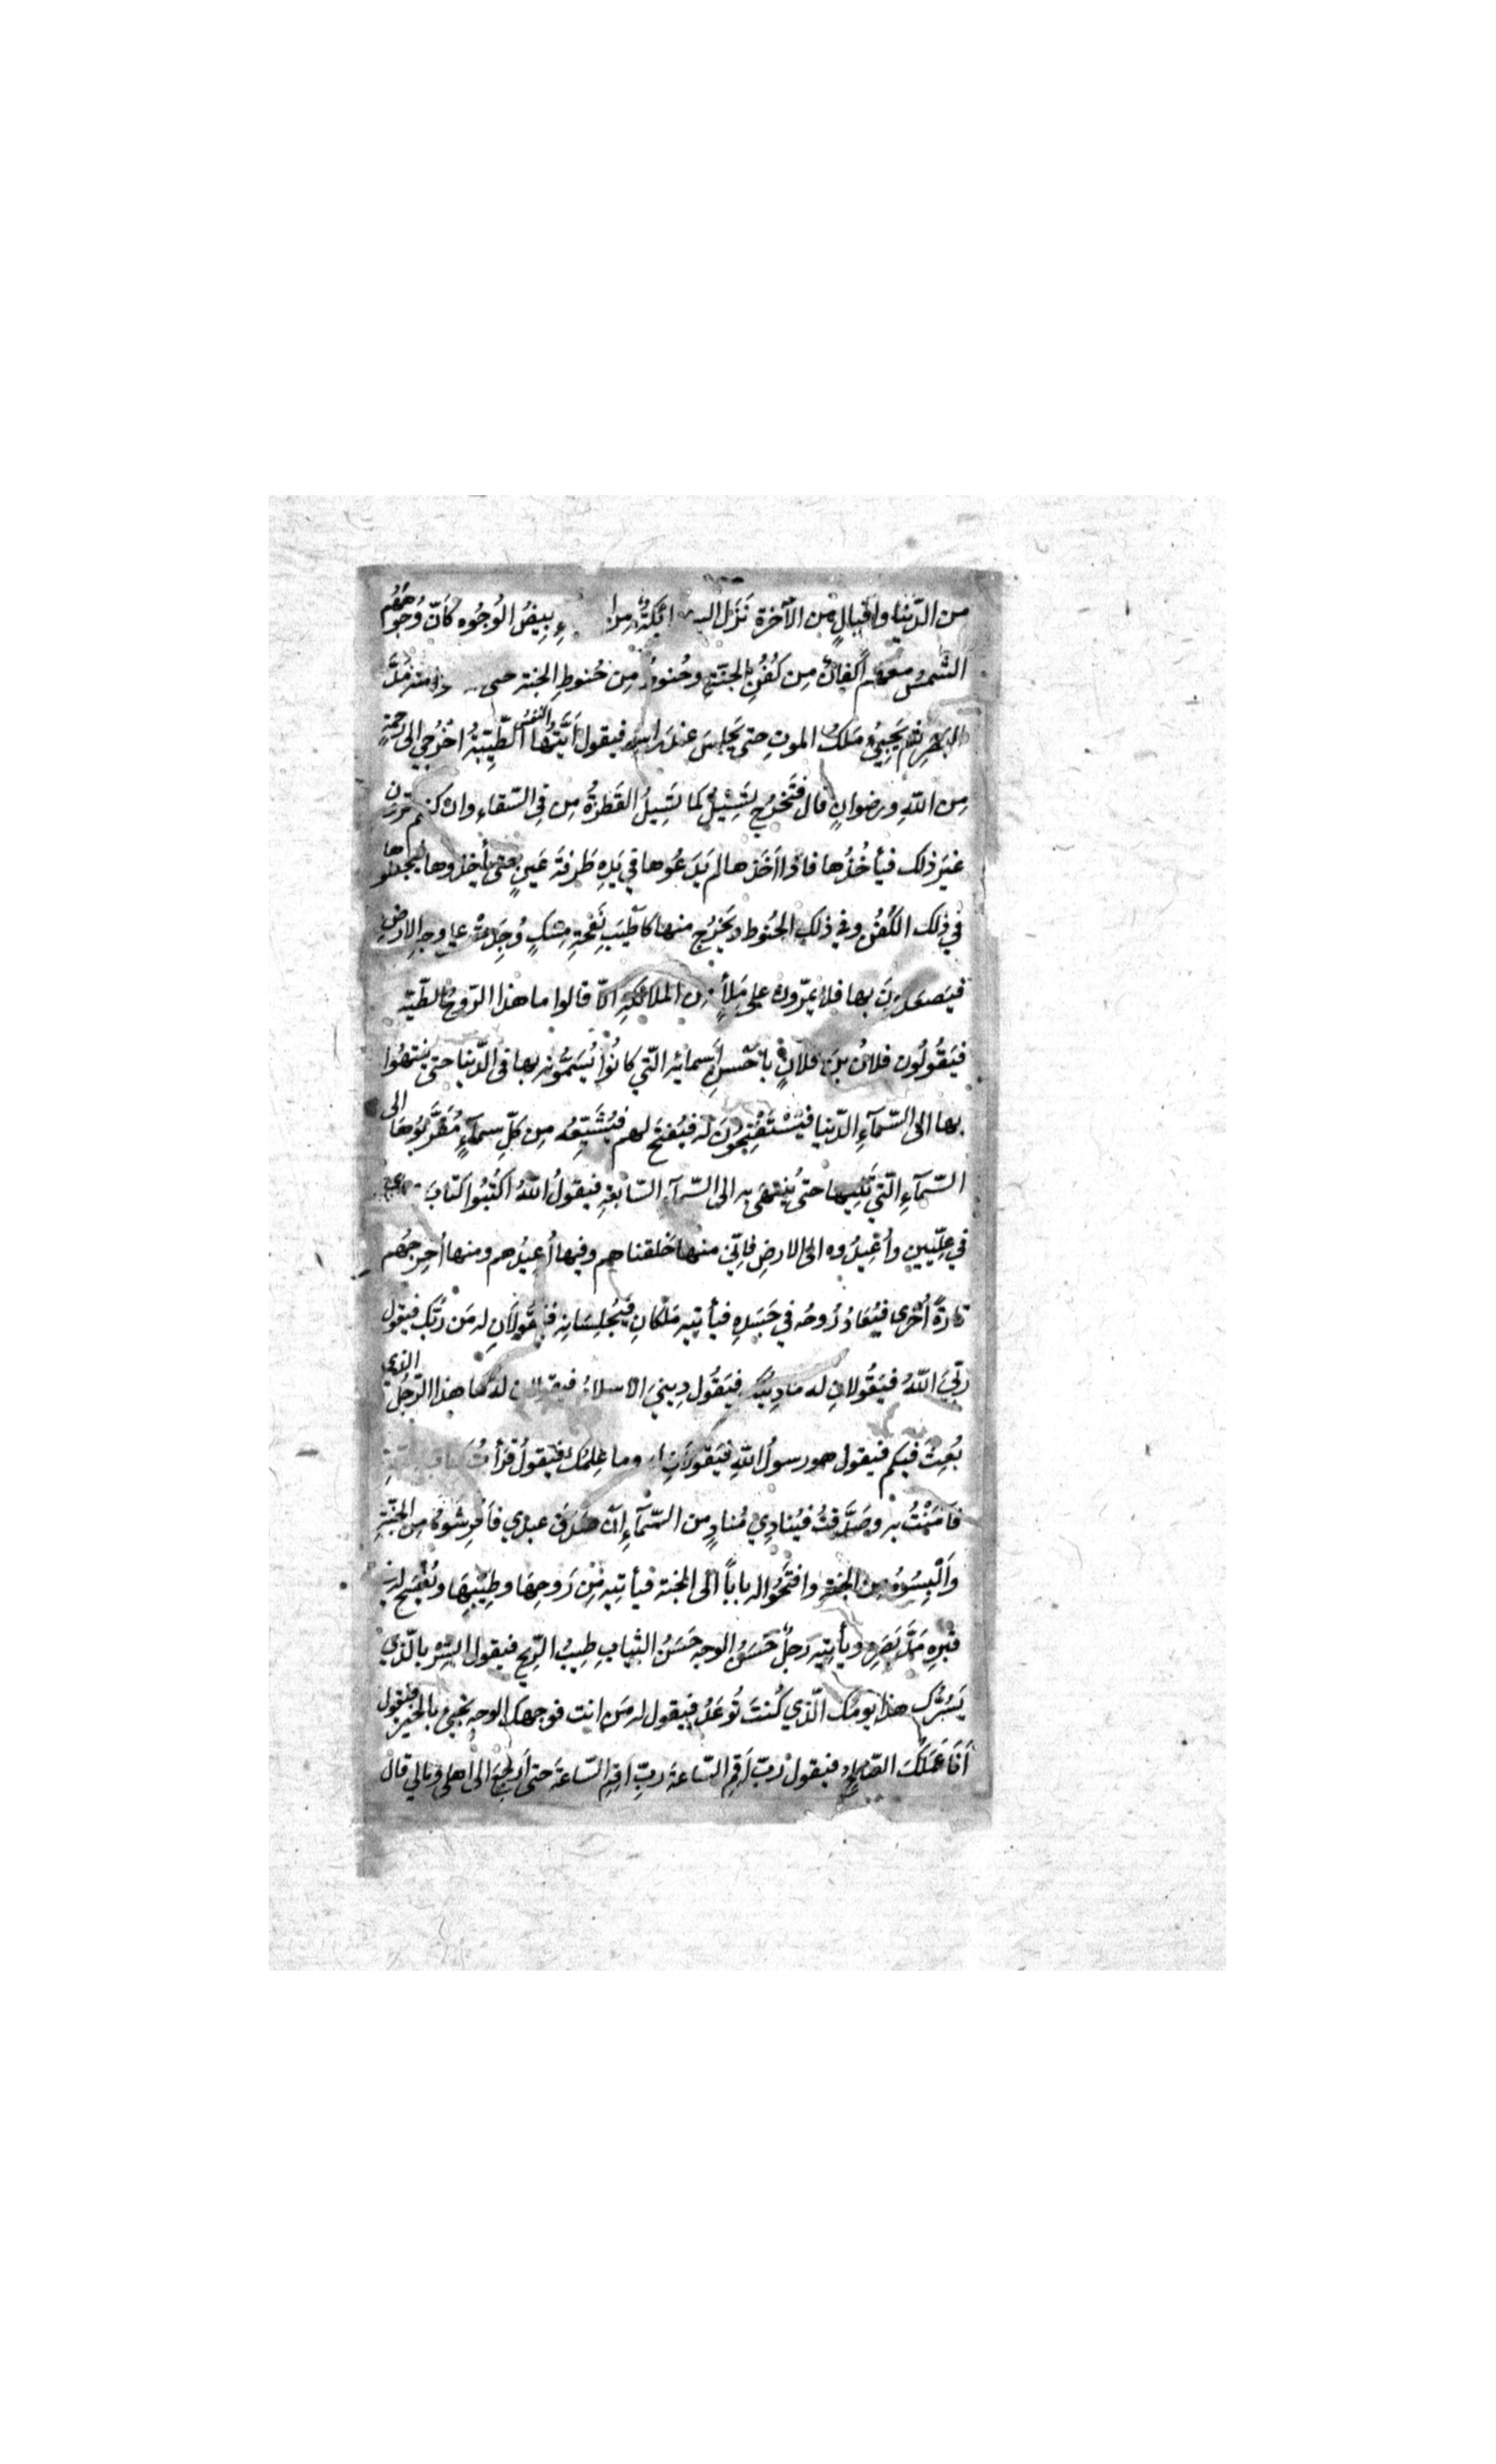 من الدّنيا واقبالٍ مِن الآخرة نَزَل بِيضُ الوُجُوه كَاَنّ وُجوههُم
الشّمسُ معهم اَكفانٌ مِن كُفُنِ الجنّةِ وحُنوطٌ مِن حُنوطِ الجنة حتى مَدَّ
البَصَرِ ثم يَجِيئُ مَلَكُ الموتِ حتى يَجلِسَ عندَ راسِه فيقول اَيَّتُها النفسُ الطّيّبةُ اخْرُجي الى رحمةٍ
مِن اللّهِ ورضوانٍ قال فَتَخرُج تَسِيلُ كما تَسِيلُ القَطرَةُ مِن فِي السّقاء وان كنتم ترون
غيرَ ذلك فيأخُذُها فاذا اَخَذها لم يَدَعُوها في يَدِهِ طَرفَةَ عَينٍ حتى يأخذوها فيجعلوها
في ذلك الكُفُن وفي ذلك الحُنوط ويَخرُج منها كاَطيَبِ نَفحَةِ مِسكٍ وُجِدَتْ على وجه الارضِ
فيَصعَدونَ بها فلا يمرّون على مَلَأٍ من الملائكةِ الاّ قالوا ما هذا الرّوحُ الطّيّبه
فيَقُولُون فلانُ بنُ فلانٍ باَحسنِ اَسمائِه الّتي كانُوا يُسَمُّونه بها في الدّنيا حتى يَنتهُوا
بها الى السّمآءِ الدّنيا فيَسْتَفْتِحُونَ له فيُفتَح لهم فيُشَيِّعُه مِن كلِّ سمآءٍ مُقَرَّبُوهَا الى
السّمآءِ الّتي تَلِيها حتى يُنتهَى به الى السّمآء السّابعَةِ فيقولُ اللّهُ اكتُبُوا كتابَ عبدي
في عِلّيّين واَعِيدُوه الى الارضِ فاِنّي منها خَلَقناهم وفيها اُعِيدُهم ومنها اُخرِجُهُم
تارةً اُخرى فيُعَادُ رُوحُه في جَسَدِهِ فيأتيه مَلَكانِ فَيُجلِسَانِه فيَقُولاَنِ له مَن رَبُّكَ فيقول
ربِّيَ اللّهُ فيَقُولانِ له مَا دِينُكَ فيَقُول دِينيَ الاسلامُ فيقولان لهُ ما هذا الرّجُلُ الذي
بُعِثَ فيكم فيقول هو رسولُ اللّهِ فيَقولاَنِ له وما عِلمُكَ فيَقولُ قَرَأتُ كتابَ اللّهِ
فآمَنْتُ به وصَدَّقتُ فيُنادِي مُنادٍ من السّمآءِ اِنْ صَدَقَ عبدي فاَفرِشُوهُ مِن الجنّةِ
واَلْبِسُوهُ مِن الجنةِ وافتَحُوا له باباً الى الجنة فيأتيه مِن رَوحِهَا وطِيبِهَا ويُفسَح له في
قبرِه مَدَّ بَصَرِه ويأتيه رَجلٌ حَسَنُ الوجه حَسَنُ الثيابِ طِيبُ الرّيحِ فيقول ابشر بالّذي
يَسُرُّك هذا يومُك الّذي كُنتَ تُوعَدُ فيقول له مَن انت فوجهك الوجه يجيئ بالخير فيقول
اَنَا عَمَلُكَ الصّالحُ فيقولُ ربّ اَقِمِ السّاعةَ ربّ اَقِمِ السّاعةَ حتى اَرجِعَ الى اهلي ومالي قال